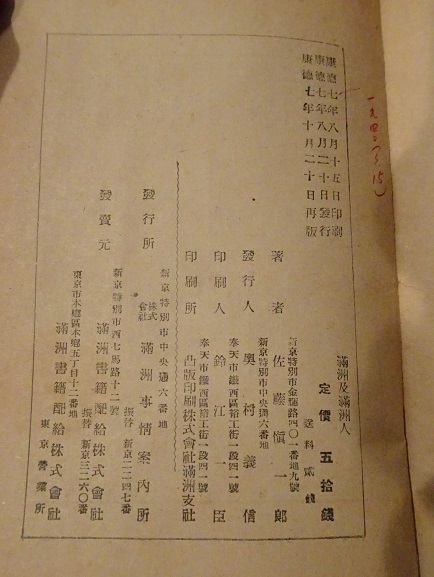 康德七年八月十五日印刷
康德七年八月二十日發行
康德七年十月二十日再版
滿洲及滿洲人
定價五拾錢
送料貳錢
新京特別市金輝路四〇一番地九號
著者 佐藤愼一郎
新京特別市中央通六番地
發行人 奧村義信
奉天市鐵西區裕工街一段四一號
印刷人 鈴江一臣
奉天市鐵西區裕工街一段四一號
印刷所 凸版印刷株式會社滿洲支社
新京特別市中央通六番地
發行所 株式會社 滿洲事情案內所
振替 新京二二四七番
新京特別市西七馬路十二號
發賣元 滿洲書籍配給株式會社
振替 新京三二六〇番
東京市本鄉區本鄉五丁目十二番地
滿洲書籍配給株式會社
東京營業所